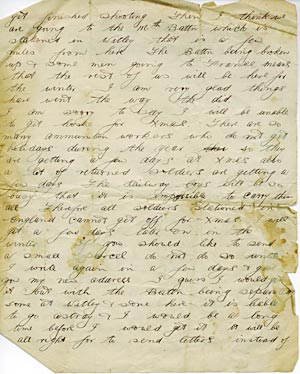 got finished shooting Then I think we
are going to the Battn which is
stationed in Witley that is a few
miles from here The Battn being broken
up & some men going to France means
that the rest of us will be here for
the winter I am very glad things
have went the way they did
I am sorry to say I will be unable
to get for Xmas There are so
many ammunition workers who do not get
holidays during the year so they
are getting a few days at Xmas also
a lot of returned soldiers are getting a
few days The railway will be so
busy that it is impossible to carry them
all Therefore all soldiers stationed in
England cannot get off for Xmas I will
get a few days later on in the
winter If you should like to send
a small parcel do not do so until
I write again in a few days & give
you my new address I guess I would get
it but with the Battn being separated
some at Witley & some here it is liable
to go astray & I would be a long
time before I would get it It will be
all right for to send letters instead of